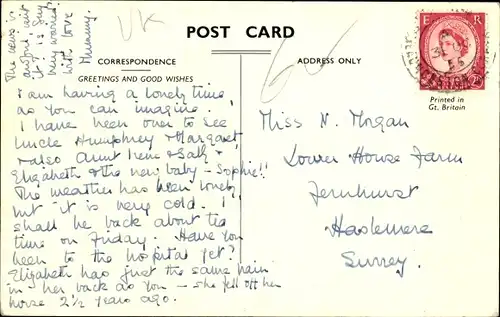 POST CARD
CORRESPONDENCE
ADDRESS ONLY
GREETINGS AND GOOD WISHES
I am having a lovely time
as you can imagine.
I have been over to see
Uncle Humphrey & Margaret,
& also Aunt Irene & Sally &
Elizabeth & the new baby - Sophie!!
The weather has been lovely,
but it is very cold. I
shall be back about tea
time on Friday. Have you
been to the hospital yet?
Elizabeth has just the same pain
in her back as you - she fell off her
horse 2½ years ago.
The news is
awful, isn't
it? is Guy
very worried?
With love
Mummy.
UK
E R
Printed in
Gt. Britain
Miss N. Morgan
Lower House Farm
Fernhurst
Haslemere
Surrey.